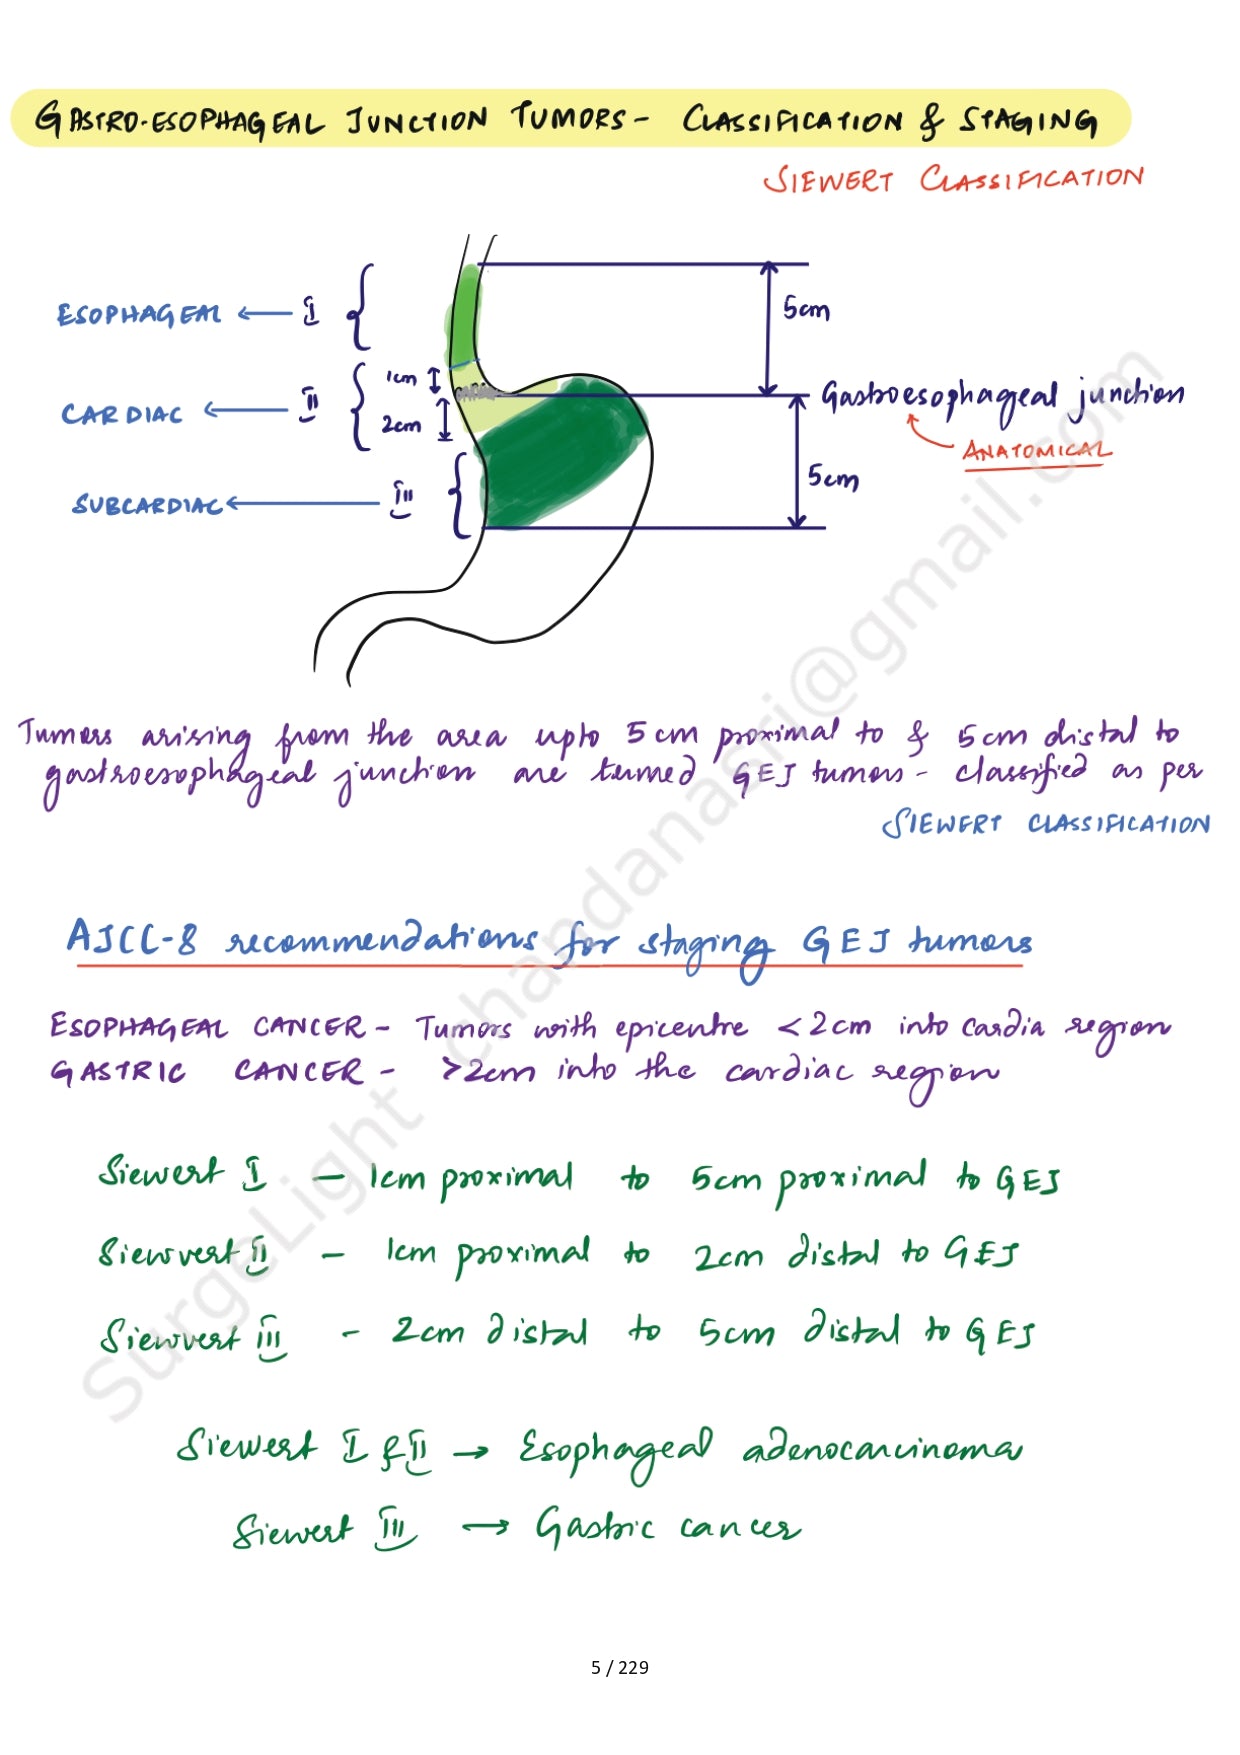 GASTRO-ESOPHAGEAL JUNCTION TUMORS - CLASSIFICATION & STAGING
SIEWERT CLASSIFICATION
5cm
ESOPHAGEAL ← I
1cm
Gastroesophageal junction
CARDIAC ← II
2cm
ANATOMICAL
5cm
SUBCARDIAC ← III
Tumors arising from the area upto 5cm proximal to & 5cm distal to
gastroesophageal junction are termed GEJ tumors - classified as per
SIEWERT CLASSIFICATION
AJCC-8 recommendations for staging GEJ tumors
ESOPHAGEAL CANCER - Tumors with epicentre <2cm into cardia region
GASTRIC CANCER - >2cm into the cardiac region
Siewert I - 1cm proximal to 5cm proximal to GEJ
Siewvert II - 1cm proximal to 2cm distal to GEJ
Siewvert III - 2cm distal to 5cm distal to GEJ
Siewert I & II → Esophageal adenocarcinoma
Siewert III → Gastric cancer
SurgeLight chandanasri@gmail.com
5 / 229